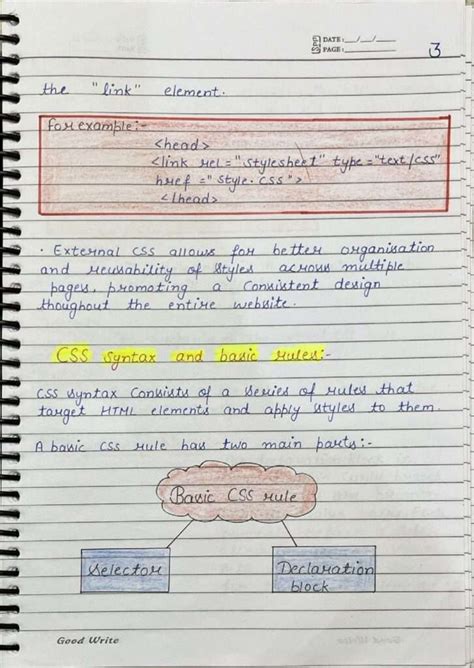 DATE: __/__/__
PAGE: ______
3
the "link" element.
For example:-
<head>
<link rel="stylesheet" type="text/css"
href="style.css">
</head>
· External CSS allows for better organisation
and reusability of styles across multiple
pages, promoting a Consistent design
thoughout the entire website.
CSS syntax and basic rules:-
CSS syntax Consists of a series of rules that
target HTML elements and apply styles to them.
A basic CSS rule has two main parts:-
Basic CSS rule
Selector
Declaration
block
Good Write